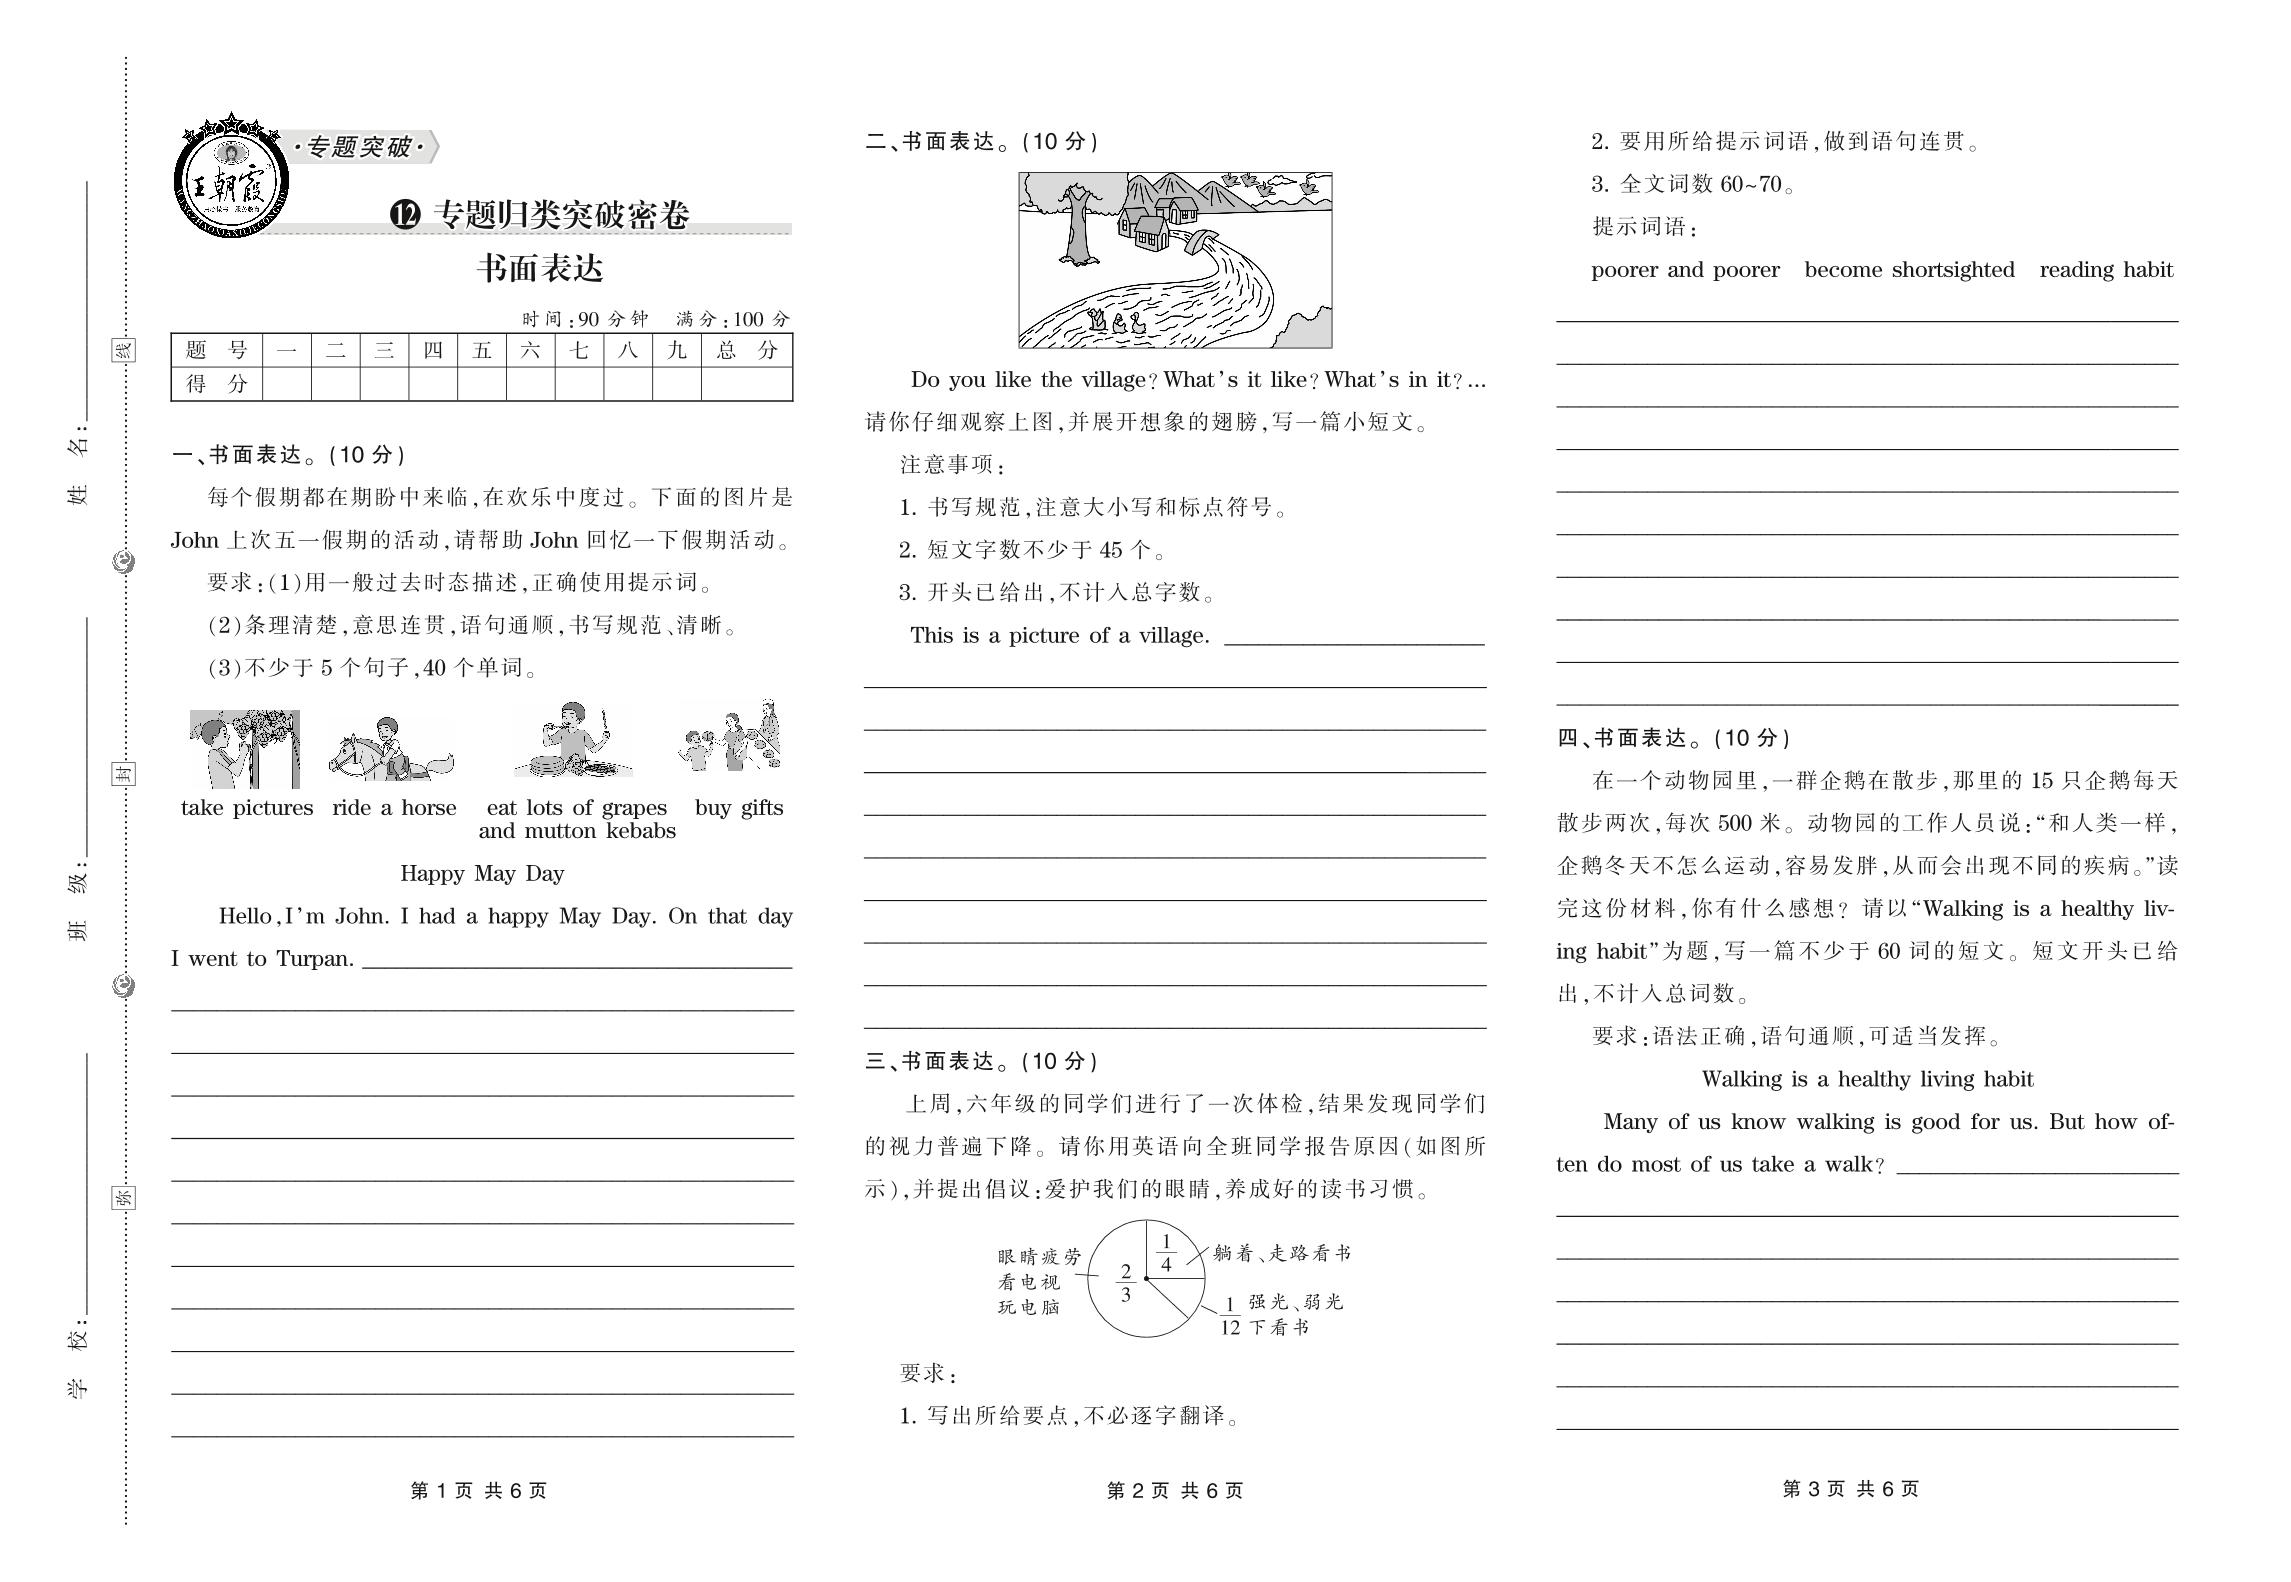 姓 名:
班 级:
学 校:
线
封
弥
·专题突破·
王朝霞
⑫ 专题归类突破密卷
书面表达
时间:90 分钟 满分:100 分
题 号 一 二 三 四 五 六 七 八 九 总 分
得 分
一、书面表达。(10 分)
每个假期都在期盼中来临,在欢乐中度过。下面的图片是
John 上次五一假期的活动,请帮助 John 回忆一下假期活动。
要求:(1)用一般过去时态描述,正确使用提示词。
(2)条理清楚,意思连贯,语句通顺,书写规范、清晰。
(3)不少于 5 个句子,40 个单词。
take pictures ride a horse eat lots of grapes buy gifts
and mutton kebabs
Happy May Day
Hello,I'm John. I had a happy May Day. On that day
I went to Turpan.
第 1 页 共 6 页
二、书面表达。(10 分)
Do you like the village? What's it like? What's in it? ...
请你仔细观察上图,并展开想象的翅膀,写一篇小短文。
注意事项:
1. 书写规范,注意大小写和标点符号。
2. 短文字数不少于 45 个。
3. 开头已给出,不计入总字数。
This is a picture of a village.
三、书面表达。(10 分)
上周,六年级的同学们进行了一次体检,结果发现同学们
的视力普遍下降。请你用英语向全班同学报告原因(如图所
示),并提出倡议:爱护我们的眼睛,养成好的读书习惯。
眼睛疲劳
看电视
玩电脑
2/3
1/4
躺着、走路看书
1/12
强光、弱光
下看书
要求:
1. 写出所给要点,不必逐字翻译。
第 2 页 共 6 页
2. 要用所给提示词语,做到语句连贯。
3. 全文词数 60~70。
提示词语:
poorer and poorer become shortsighted reading habit
四、书面表达。(10 分)
在一个动物园里,一群企鹅在散步,那里的 15 只企鹅每天
散步两次,每次 500 米。动物园的工作人员说:“和人类一样,
企鹅冬天不怎么运动,容易发胖,从而会出现不同的疾病。”读
完这份材料,你有什么感想? 请以“Walking is a healthy liv-
ing habit”为题,写一篇不少于 60 词的短文。短文开头已给
出,不计入总词数。
要求:语法正确,语句通顺,可适当发挥。
Walking is a healthy living habit
Many of us know walking is good for us. But how of-
ten do most of us take a walk?
第 3 页 共 6 页